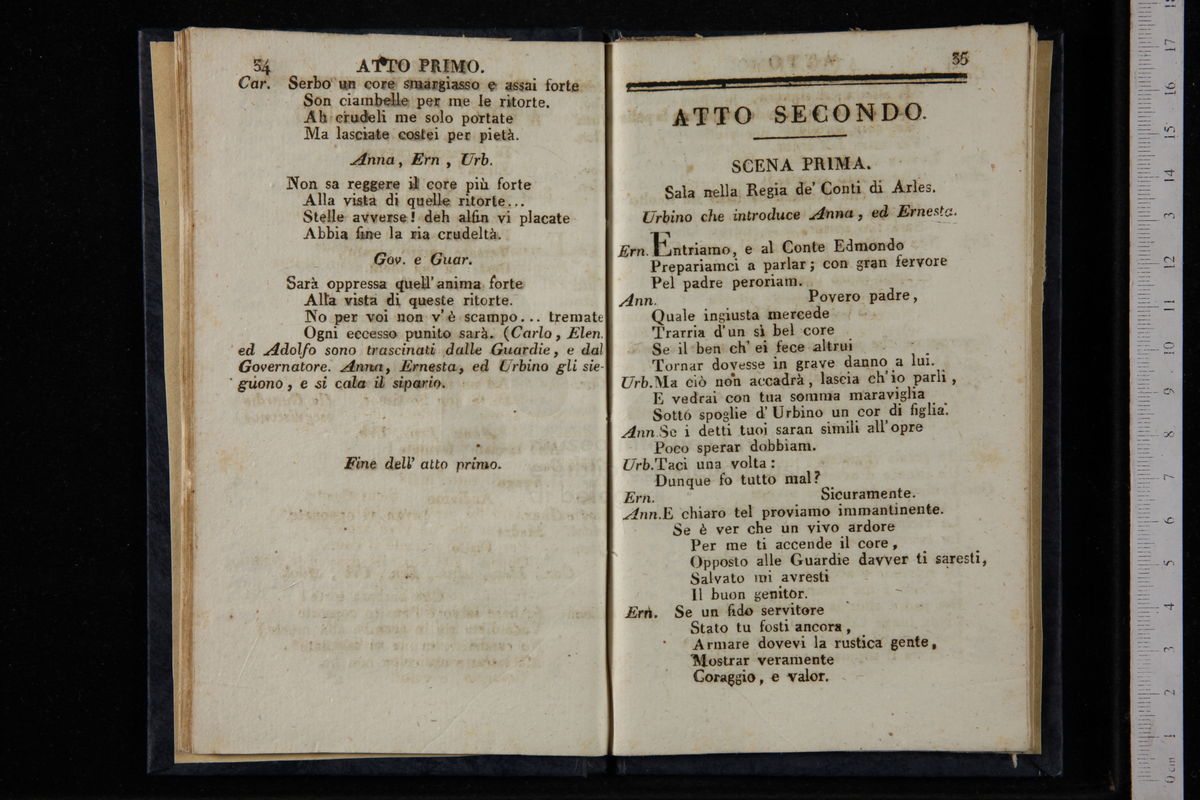 34 ATTO PRIMO.
Car. Serbo un core smargiasso e assai forte
Son ciambelle per me le ritorte.
Ah crudeli me solo portate
Ma lasciate costei per pietà.
Anna, Ern, Urb.
Non sa reggere il core più forte
Alla vista di quelle ritorte...
Stelle avverse! deh alfin vi placate
Abbia fine la ria crudeltà.
Gov. e Guar.
Sarà oppressa quell' anima forte
Alla vista di queste ritorte.
No per voi non v' è scampo... tremate
Ogni eccesso punito sarà. (Carlo, Elen.
ed Adolfo sono trascinati dalle Guardie, e dal
Governatore. Anna, Ernesta, ed Urbino gli sie-
guono, e si cala il sipario.
Fine dell' atto primo.
35
ATTO SECONDO.
SCENA PRIMA.
Sala nella Regia de' Conti di Arles.
Urbino che introduce Anna, ed Ernesta.
Ern. Entriamo, e al Conte Edmondo
Prepariamci a parlar; con gran fervore
Pel padre peroriam.
Ann. Povero padre,
Quale ingiusta mercede
Trarria d'un sì bel core
Se il ben ch' ei fece altrui
Tornar dovesse in grave danno a lui.
Urb. Ma ciò non accadrà, lascia ch' io parli,
E vedrai con tua somma maraviglia
Sotto spoglie d' Urbino un cor di figlia.
Ann. Se i detti tuoi saran simili all' opre
Poco sperar dobbiam.
Urb. Taci una volta:
Dunque fo tutto mal?
Ern. Sicuramente.
Ann. E chiaro tel proviamo immantinente.
Se è ver che un vivo ardore
Per me ti accende il core,
Opposto alle Guardie davver ti saresti,
Salvato mi avresti
Il buon genitor.
Ern. Se un fido servitore
Stato tu fosti ancora,
Armare dovevi la rustica gente,
Mostrar veramente
Coraggio, e valor.
0 cm 1 2 3 4 5 6 7 8 9 10 11 12 3 14 15 16 17 18